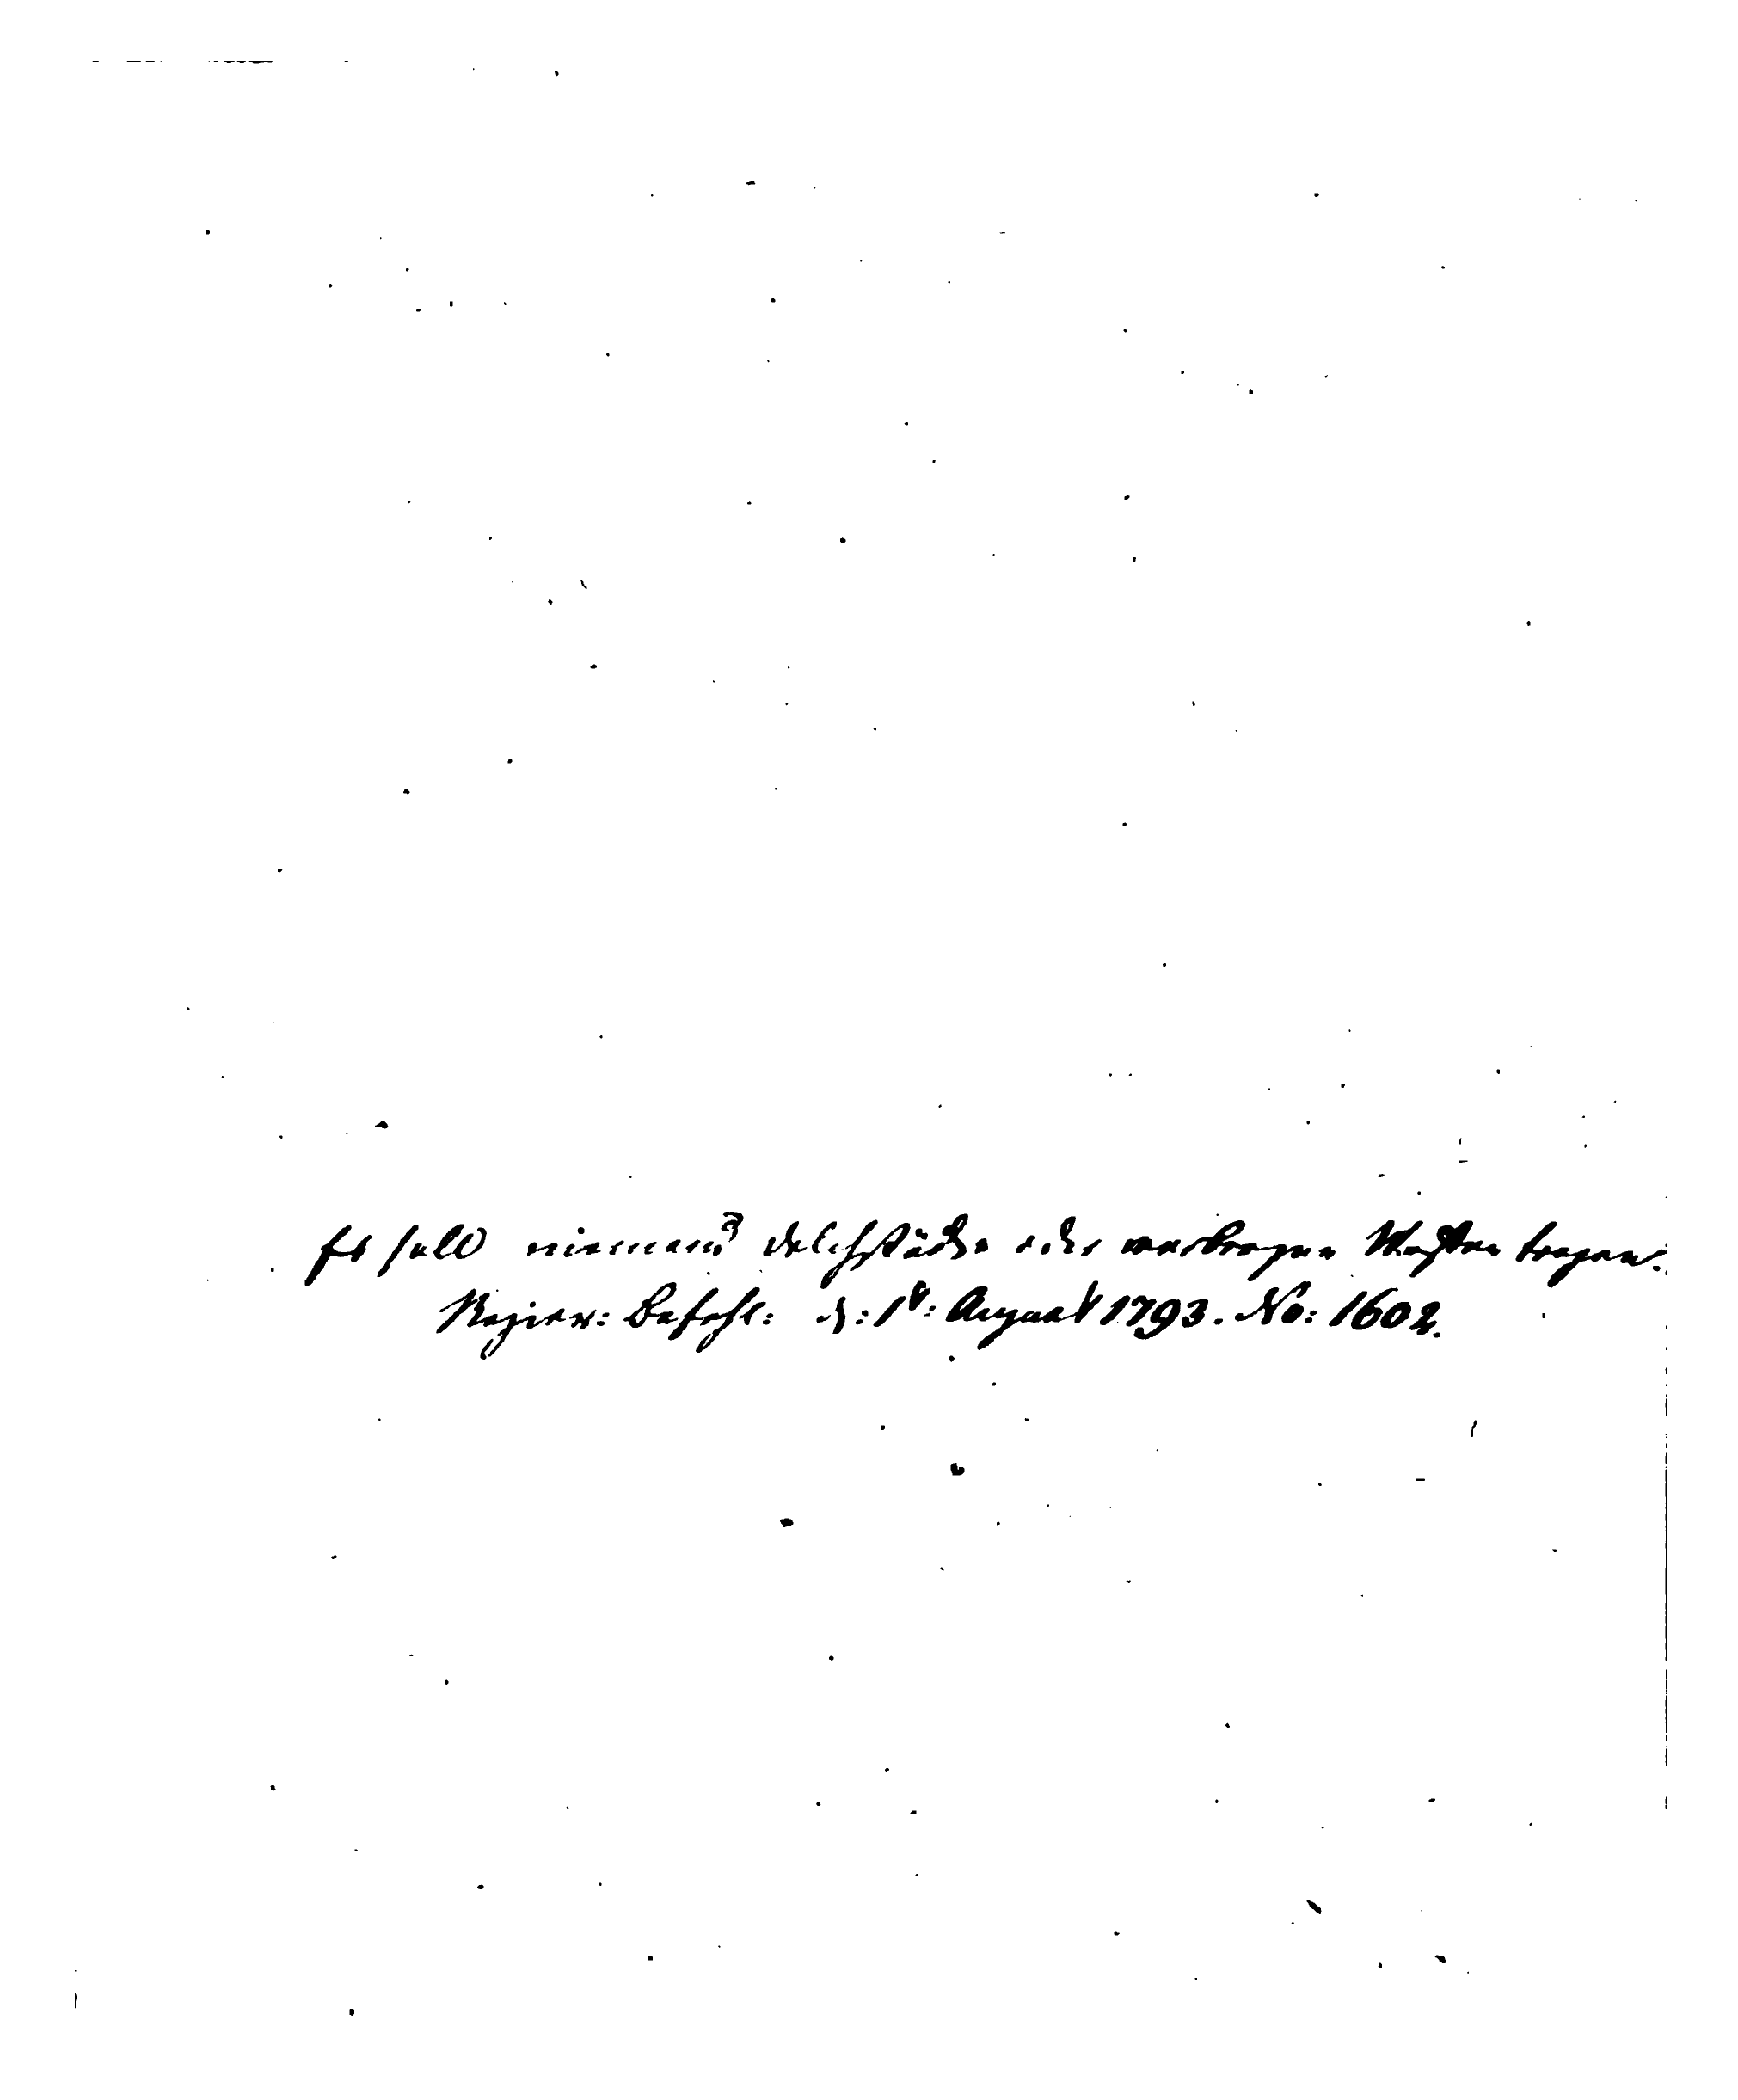 Es soll niemand Dolchstöcke oder verborgene Waffen tragen.
Regier: Befehl: d: 1t: August 1793. No: 1602.